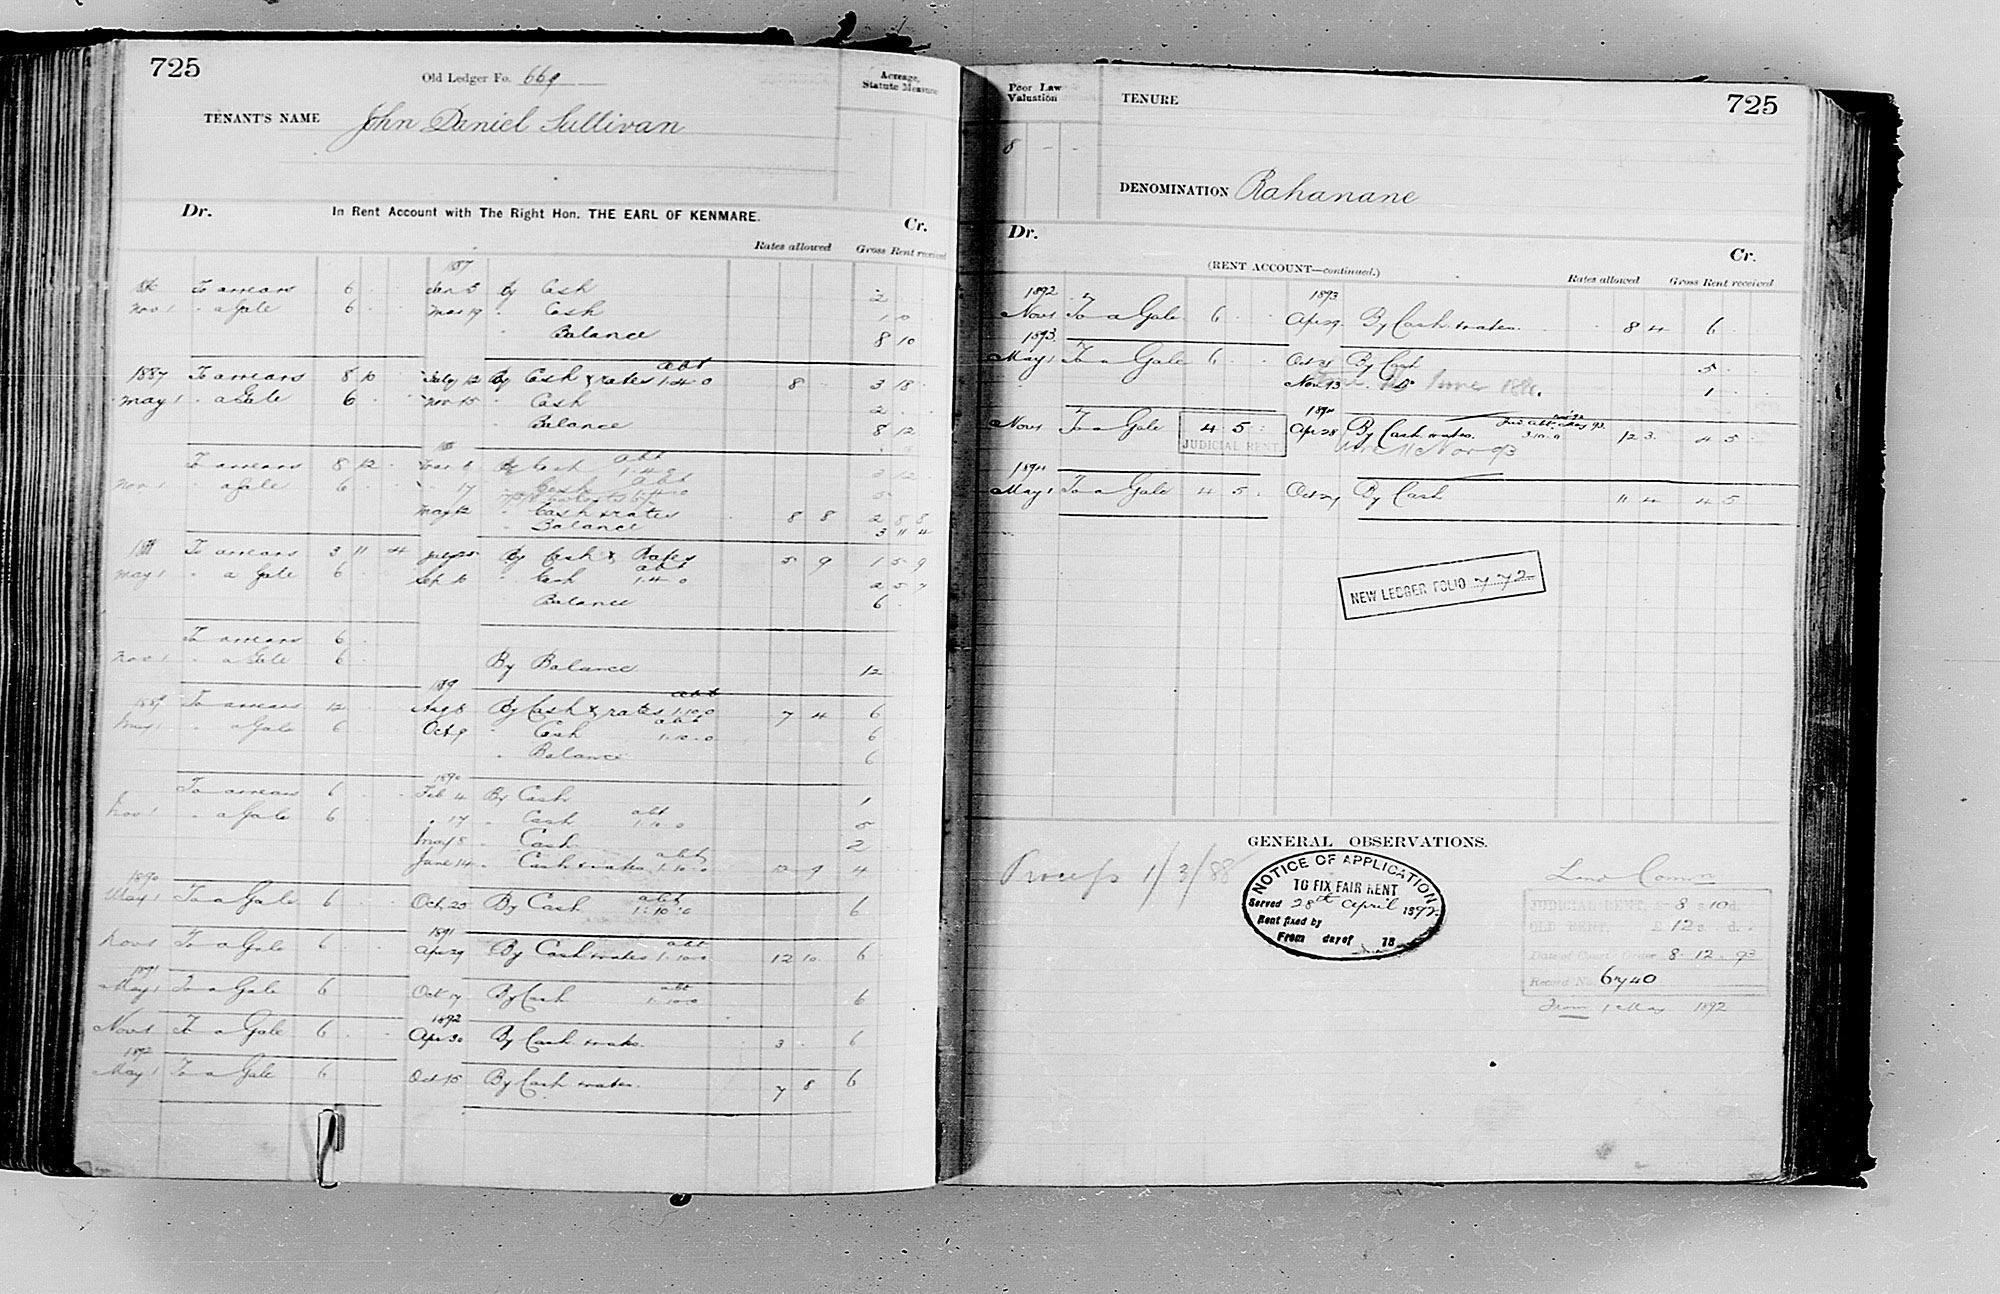 725
Old Ledger Fo. 669
Acreage, Statute Measure
TENANT'S NAME John Daniel Sullivan
Dr. In Rent Account with The Right Hon. THE EARL OF KENMARE. Cr.
Rates allowed Gross Rent received
1887
To arrears 6 Jan 5 By Cash 2
Nov 1 " a Gale 6 Mar 19 " Cash 1 10
" Balance 8 10
abt
1887 To arrears 8 10 July 12 By Cash & rates 1.4.0 8 3 18
May 1 " a Gale 6 Nov 15 " Cash 2
" Balance 8 12
To arrears 8 12 By Cash abt
Nov 1 " a Gale 6 " 17 " Cash abt 5
May 12 " Cash & rates 8 8 2 8 8
" Balance 3 11 4
1888 To arrears 3 11 4 July 25 By Cash & Rates 5 9 1 5 9
May 1 " a Gale 6 Sep 10 " Cash abt 1.4.0 2 5 7
" Balance 6
To arrears 6
Nov 1 " a Gale 6 By Balance 12
1889
1889 To arrears 12 Aug 8 By Cash & rates abt 1.10.0 7 4 6
May 1 " a Gale 6 Oct 9 " Cash abt 1.10.0 6
" Balance 6
1890
To arrears 6 Feb 4 By Cash 1
Nov 1 " a Gale 6 " 17 " Cash abt 1.10.0 5
May 8 " Cash 2
June 14 " Cash & rates abt 1.10.0 12 9 4
1890
May 1 To a Gale 6 Oct 23 By Cash abt 1.10.0 6
1891
Nov 1 To a Gale 6 Apr 29 By Cash & rates abt 1.10.0 12 10 6
1891
May 1 To a Gale 6 Oct 17 By Cash abt 1.10.0 6
1892
Nov 1 To a Gale 6 Apr 30 By Cash & rates. 3 6
1892
May 1 To a Gale 6 Oct 15 By Cash & rates. 7 8 6
Poor Law Valuation
TENURE
725
8 - -
DENOMINATION Rahanane
Dr. Cr.
(RENT ACCOUNT—continued.)
Rates allowed Gross Rent received
1892 1893
Nov 1 To a Gale 6 Apr 29 By Cash & rates. 8 4 6
1893
May 1 To a Gale 6 Oct 21 By Cash 5
Nov 13 " Do 1
1894
Nov 1 To a Gale 4 5 Apr 28 By Cash & rates. 3.10.0 12 3 4 5
JUDICIAL RENT
1894
May 1 To a Gale 4 5 Oct 27 By Cash 11 4 4 5
NEW LEDGER FOLIO 772
GENERAL OBSERVATIONS.
Process 1/3/88
NOTICE OF APPLICATION
TO FIX FAIR RENT
Served 28th April 1892
Rent fixed by
From day of 18
Land Comn
JUDICIAL RENT, £ 8 s. 10 d.
OLD RENT, £ 12 s. d.
Date of Court Order 8.12.93
Record No. 6740
From 1 May 1892